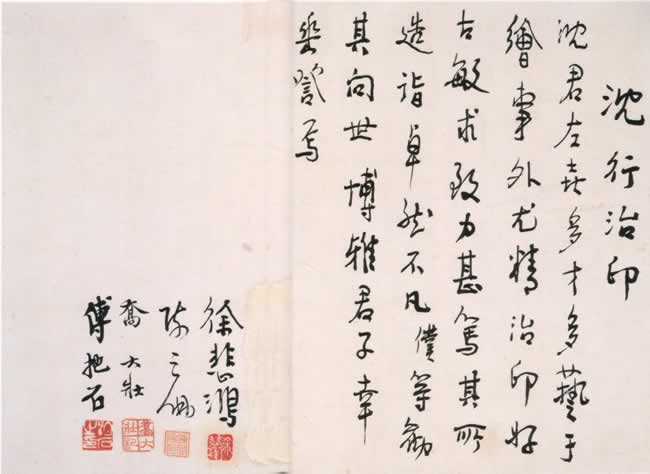 沈行治印
沈君左尭多才多藝于
繪事外尤精治印好
古敏求致力甚篤其所
造詣卓然不凡僕等勸
其问世博雅君子幸
樂譽焉
徐悲鴻
陳之佛
喬大壯
傅抱石